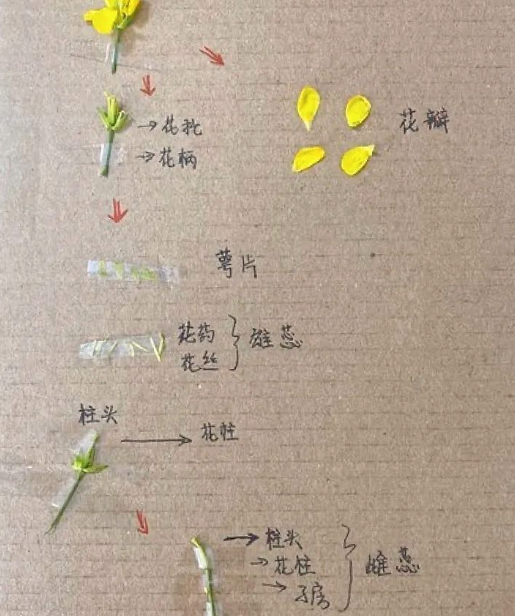 花托
花柄
花瓣
萼片
花药
花丝
雄蕊
柱头
花柱
柱头
花柱
子房
雌蕊